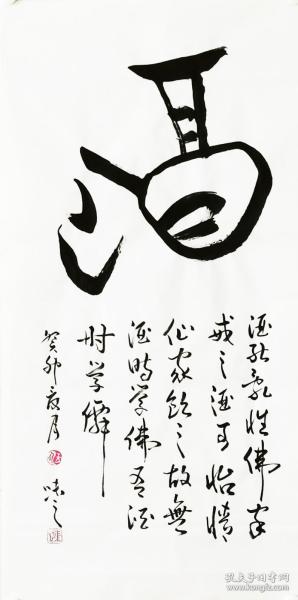 酒
酒能亂性佛家
戒之酒可怡情
仙家飲之故無
酒時学佛有酒
时学僊
癸卯夏月
孔夫子旧书网